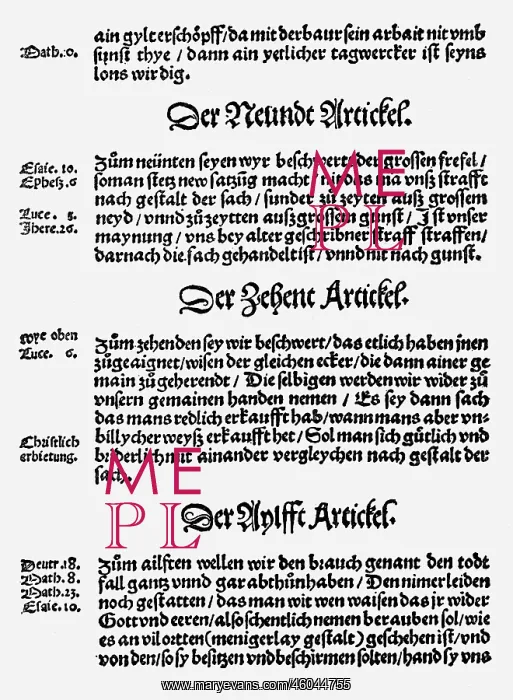 ain gylt erschöpff/ da mit der baur sein arbait nit vmb
Math. 10.
sunst thye / dann ain yetlicher tagwercker ist seyns
lons wirdig.
Der Neündt Artickel.
Esaie. 10.
Zům neünten seyen wyr beschwert der grossen frefel /
Ephes. 6
so man stetz new satzüg macht / nit das ma vnsz strafft
nach gestalt der sach / sunder zů zeyten ausz grossem
Luce. 3.
neyd / vnnd zů zeytten auszgrossem gunst / Ist vnser
Jhere. 26.
maynung / vns bey alter geschribner straff straffen/
darnach die sach gehandelt ist / vnnd nit nach gunst.
Der Zehent Artickel.
wye oben
Zům zehenden sey wir beschwert/ das etlich haben jnen
Luce. 6.
zůgeaignet/ wisen der gleichen ecker/ die dann ainer ge
main zů geherendt / Die selbigen werden wir wider zů
vnsern gemainen handen nemen / Es sey dann sach
das mans redlich erkaufft hab/ wann mans aber vn⸗
Christlich
billycher weysz erkaufft het / Sol man sich gütlich vnd
erbietung.
briderlich mit ainander vergleychen nach gestalt der
sach.
Der Aylfft Artickel.
Deutr. 18.
Zům ailften wellen wir den brauch genant den todt
Math. 8.
fall gantz vnnd gar abthůn haben / Den nimer leiden
Math. 23.
noch gestatten / das man witwen waisen das jr wider
Esaie. 10.
Gott vnd eeren/ also schentlich nemen berauben sol/ wie
es an vil ortten (menigerlay gestalt) geschehen ist/ vnd
von den/ so sy besitzen vnd beschirmen solten/ hand sy vns
ME
PL
ME
PL
www.maryevans.com/46044755